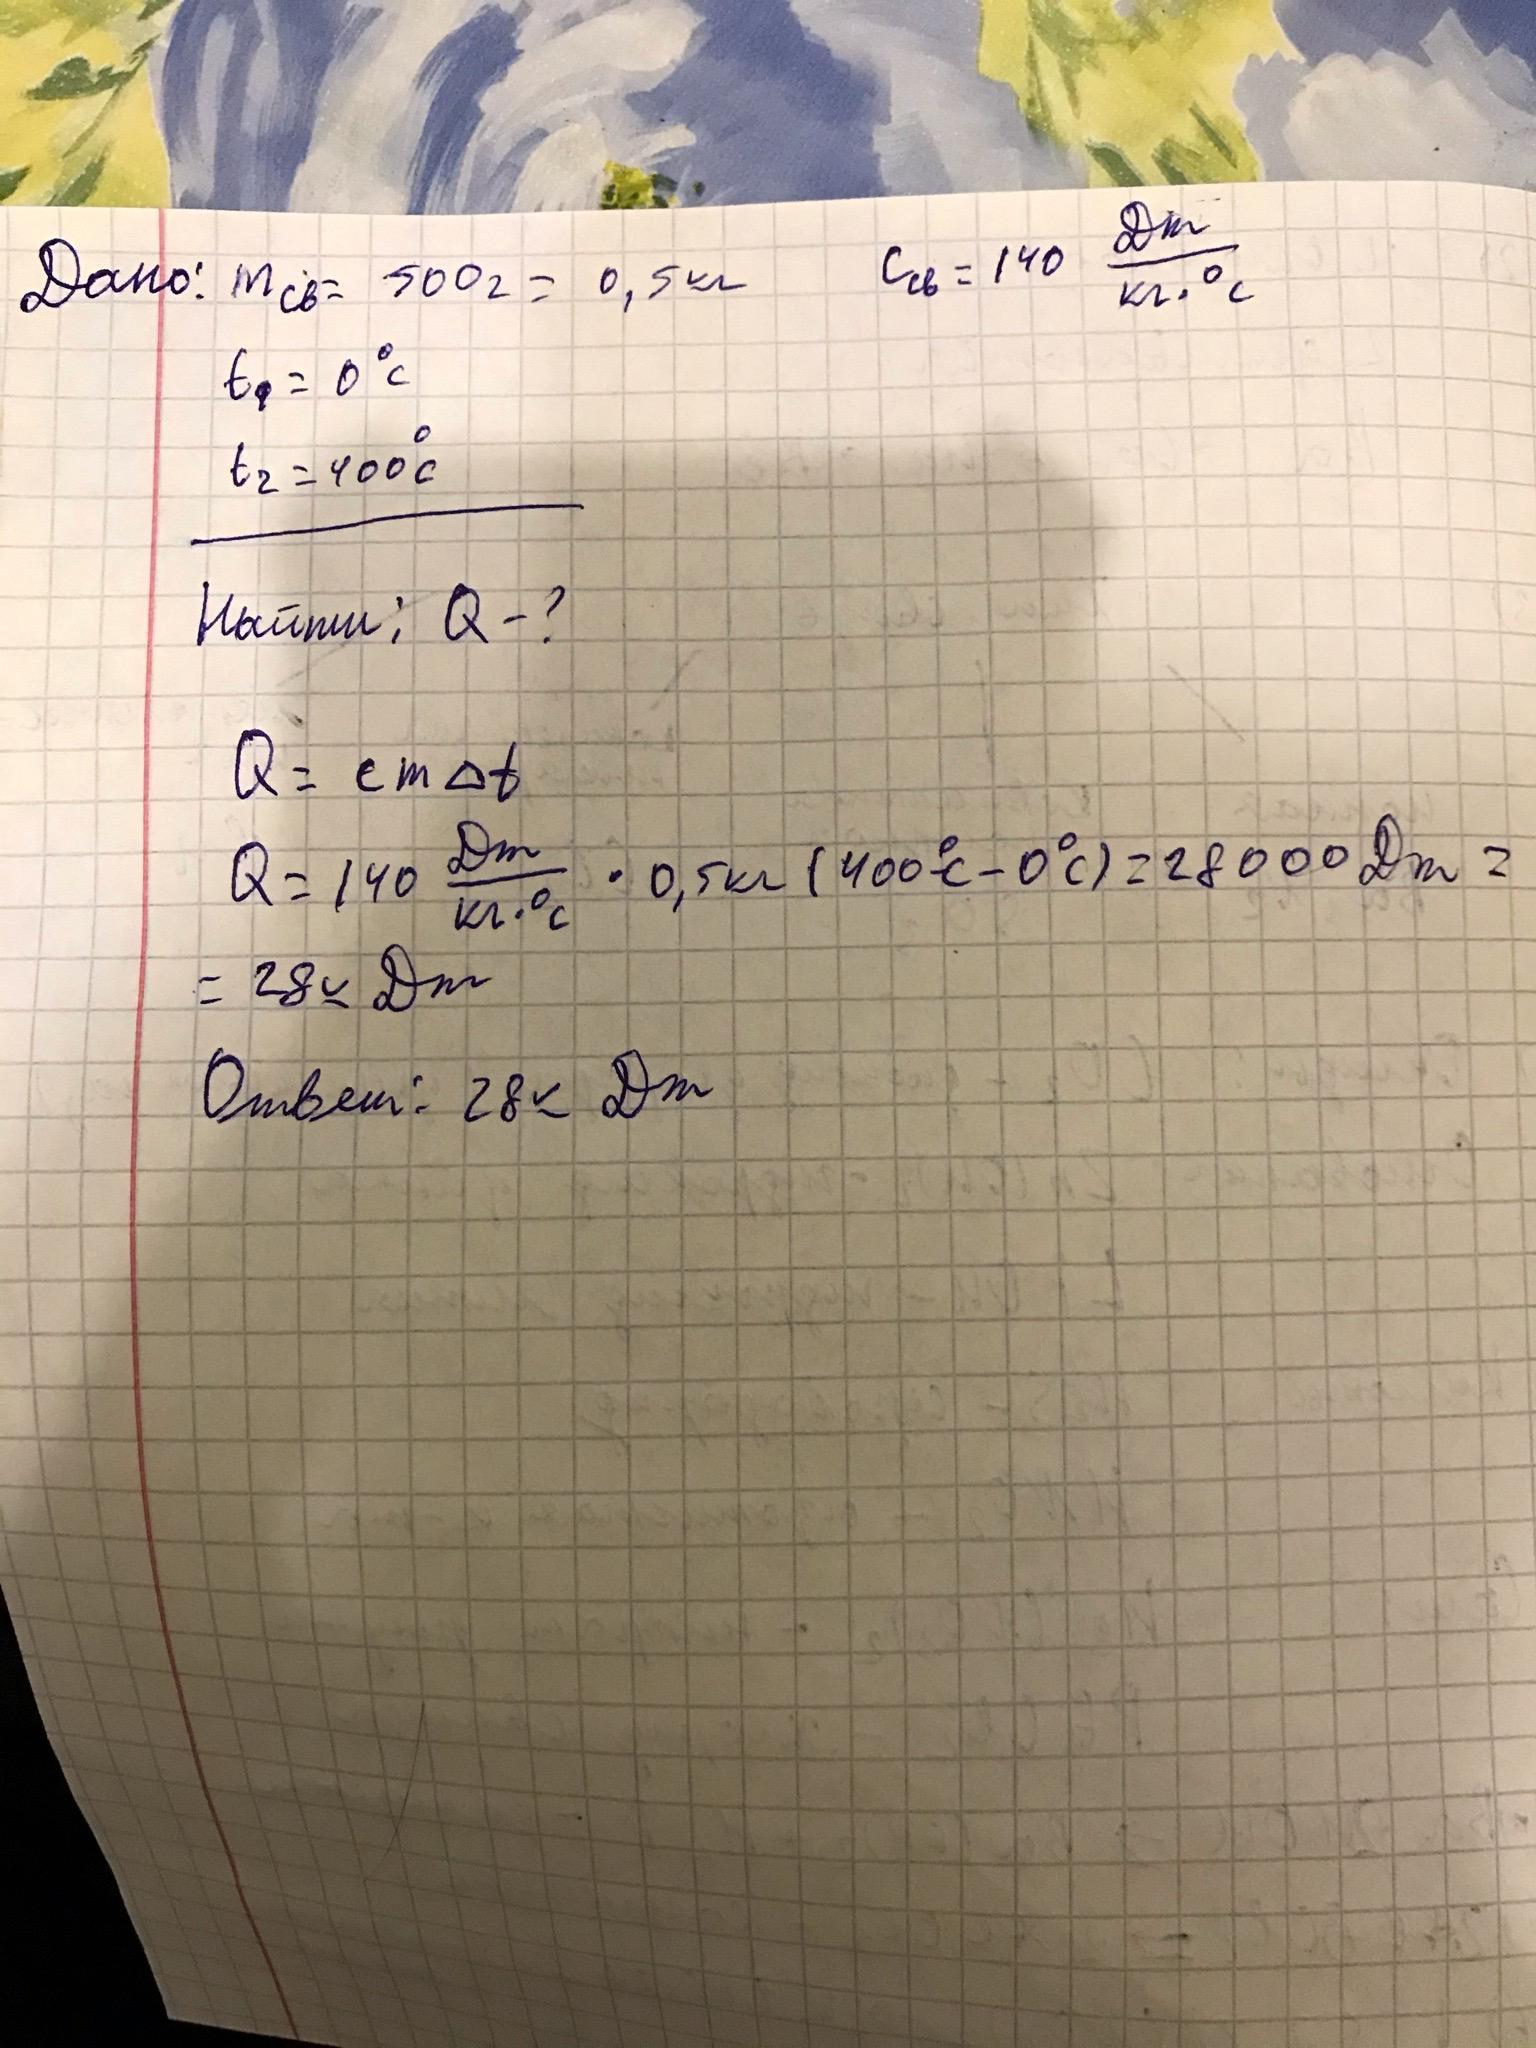 Дано: mсв = 500г = 0,5кг cсв = 140 Дж/кг·°C
t₁ = 0°C
t₂ = 400°C
Найти: Q - ?
Q = cm△t
Q = 140 Дж/кг·°C · 0,5кг (400°C - 0°C) = 28000 Дж =
= 28к Дж
Ответ: 28к Дж